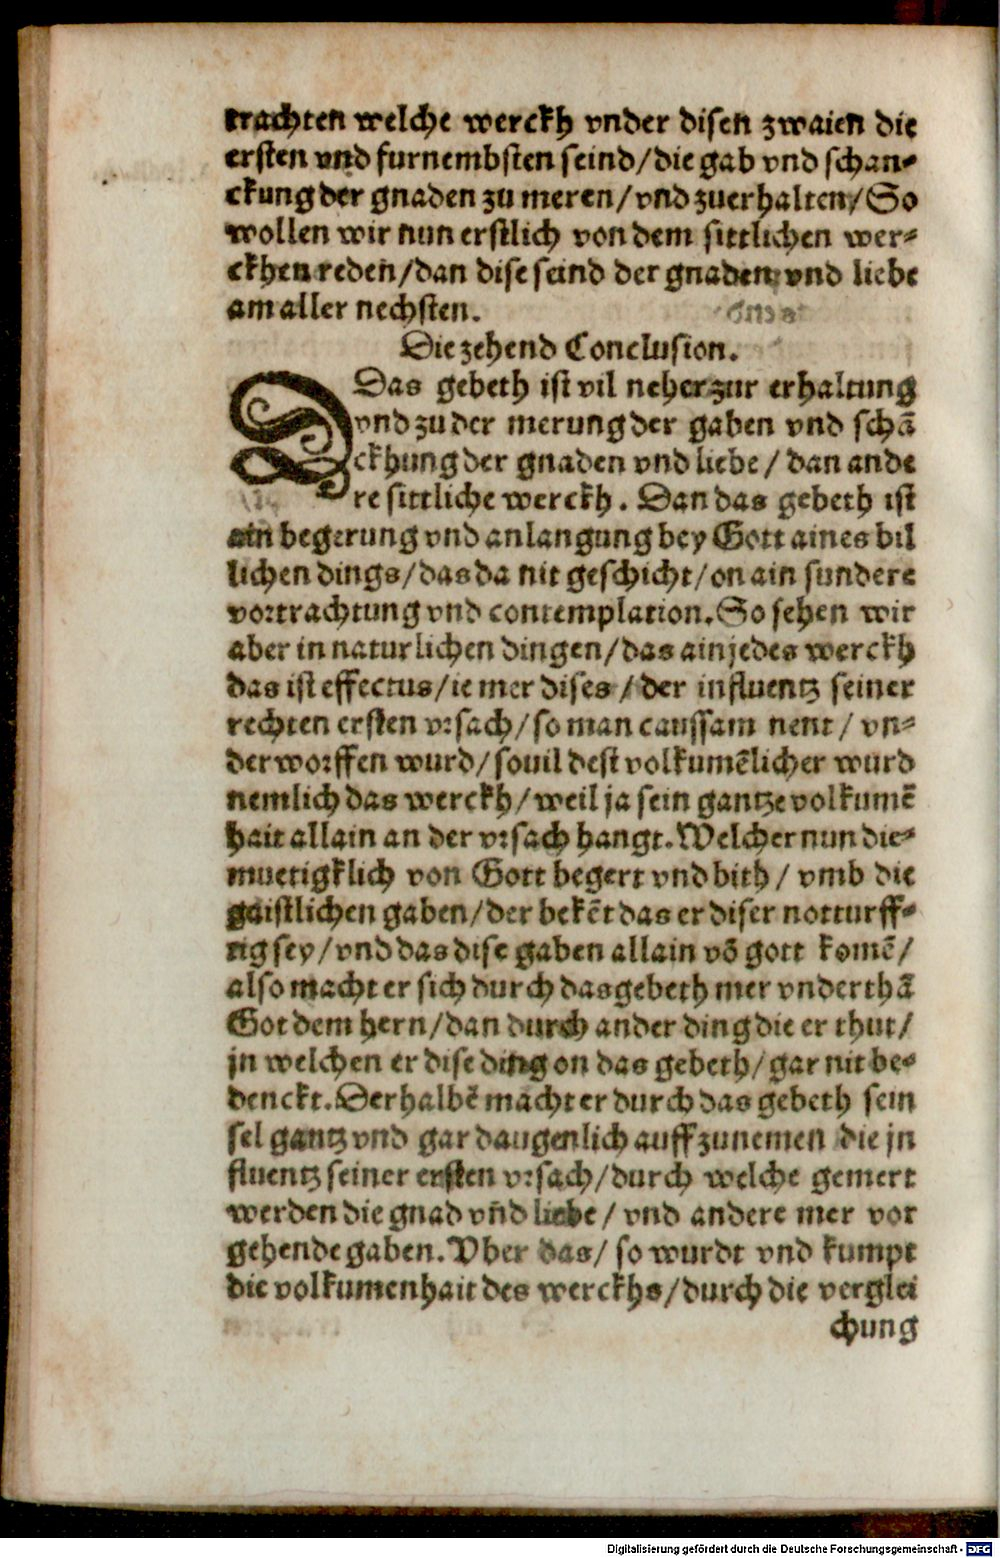 trachten welche werckh vnder disen zwaien die
ersten vnd furnembsten seind/die gab vnd schan-
ckung der gnaden zu meren/vnd zuerhalten/So
wollen wir nun erstlich von dem sittlichen wer-
ckhen reden/dan dise seind der gnaden vnd liebe
am aller nechsten.
Die zehend Conclusion.
Das gebeth ist vil neher zur erhaltung
vnd zu der merung der gaben vnd schā
ckhung der gnaden vnd liebe/dan ande
re sittliche werckh. Dan das gebeth ist
ain begerung vnd anlangung bey Gott aines bil
lichen dings/das da nit geschicht/on ain sundere
vortrachtung vnd contemplation. So sehen wir
aber in naturlichen dingen/das ain jedes werckh
das ist effectus/ie mer dises/der influentz seiner
rechten ersten vrsach/so man caussam nent/vn-
derworffen wurd/souil dest volkumēlicher wurd
nemlich das werckh/weil ja sein gantze volkumē
hait allain an der vrsach hangt. Welcher nun die-
muetigklich von Gott begert vnd bith/vmb die
gaistlichen gaben/der bekēt das er diser notturff-
tig sey/vnd das dise gaben allain vō gott komē/
also macht er sich durch das gebeth mer vnderthā
Got dem hern/dan durch ander ding die er thut/
jn welchen er dise ding on das gebeth/gar nit be-
denckt. Derhalbē macht er durch das gebeth sein
sel gantz vnd gar daugenlich auffzunemen die jn
fluentz seiner ersten vrsach/durch welche gemert
werden die gnad vn̄d liebe/vnd andere mer vor
gehende gaben. Vber das/so wurdt vnd kumpt
die volkumenhait des werckhs/durch die verglei
chung
Digitalisierung gefördert durch die Deutsche Forschungsgemeinschaft - DFG